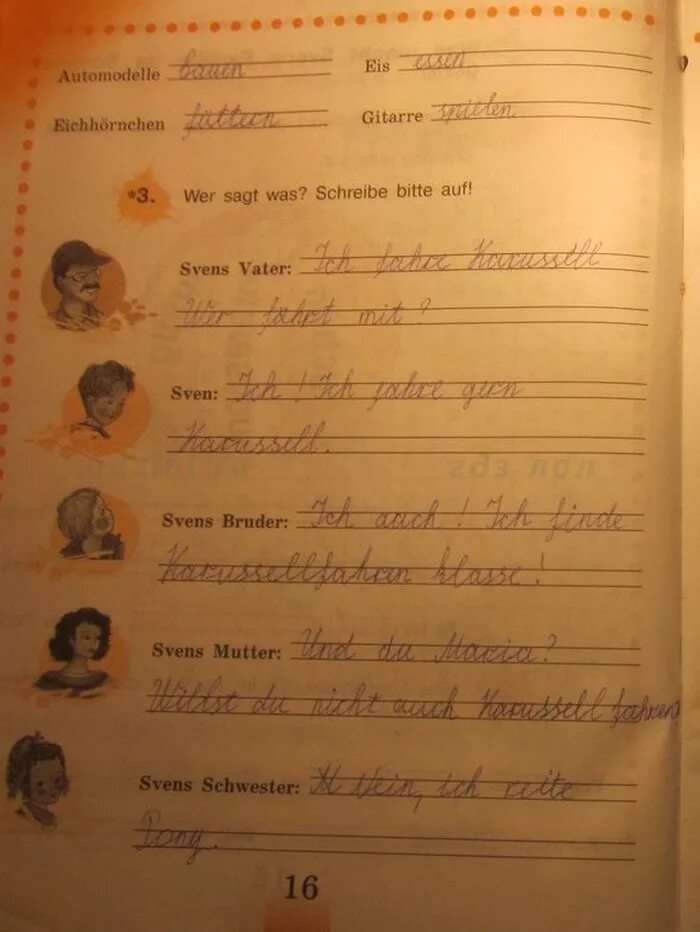 Automodelle bauen Eis essen
Eichhörnchen füttern Gitarre spielen
*3. Wer sagt was? Schreibe bitte auf!
Svens Vater: Ich fahre Karussell
Wer fährt mit?
Sven: Ich! Ich fahre gern
Karussell.
Svens Bruder: Ich auch! Ich finde
Karussellfahren klasse!
Svens Mutter: Und du Maria?
Willst du nicht auch Karussell fahren
Svens Schwester: Nein, ich reite
Pony.
16